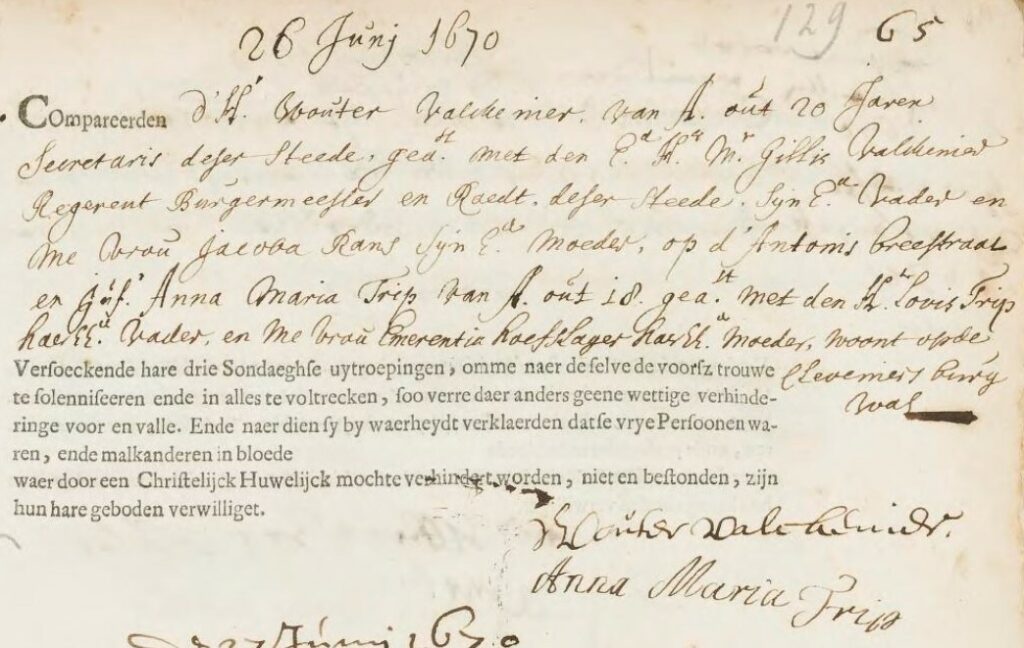 26 Junij 1670 129 65
Compareerden d'H.r Wouter Valckenier. van A. out 20 Jaren
Secretaris deser Steede, gea.st met den E.d H.r M.r Gillis Valckenier
Regerent Burgermeester en Raedt. deser Steede. Syn E.d Vader en
Me Vrou Jacoba Rans Syn E.d Moeder, op d'Antonis breestraat
en Juf.r Anna Maria Trip van A. out 18. gea.st met den H.r Lovis Trip
haer Vader, en Me Vrou Emerentia hoefslager Moeder, woont opde
Verſoeckende hare drie Sondaeghſe uytroepingen, omme naer de ſelve de voorſz trouwe Cloveniers burg
te ſolenniſeeren ende in alles te voltrecken, ſoo verre daer anders geene wettige verhinde- wal
ringe voor en valle. Ende naer dien ſy by waerheydt verklaerden datſe vrye Perſoonen wa-
ren, ende malkanderen in bloede
waer door een Chriſtelijck Huwelijck mochte verhindert worden, niet en beſtonden, zijn
hun hare geboden verwilliget.
Wouter Valckenier.
Anna Maria Trip
27 Junij 1670